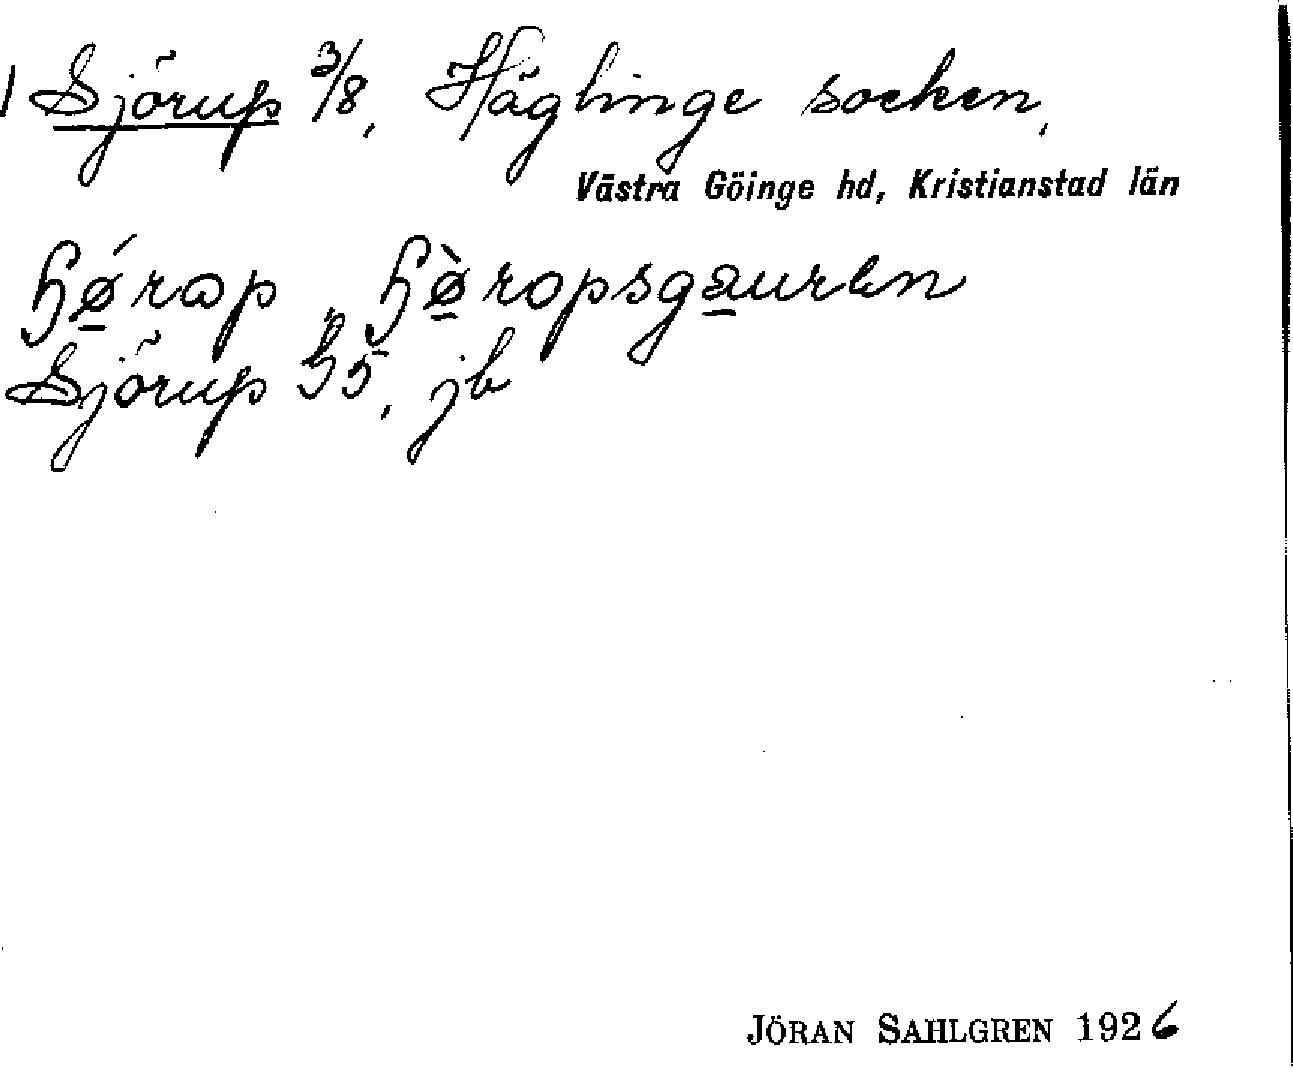 Sjörup 3/8, Häglinge socken,
Västra Göinge hd, Kristianstad län
ɧǿ̲rap, ɧø̲̀ropsga̲uren
Sjörup 35, jb
JÖRAN SAHLGREN 1926